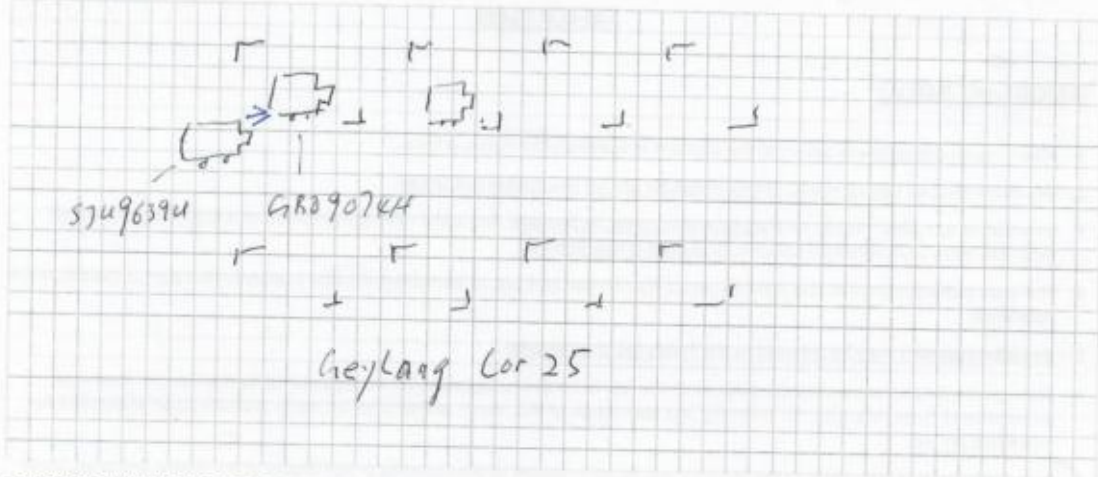 SJU9639U GBD9074H
Geylang Lor 25